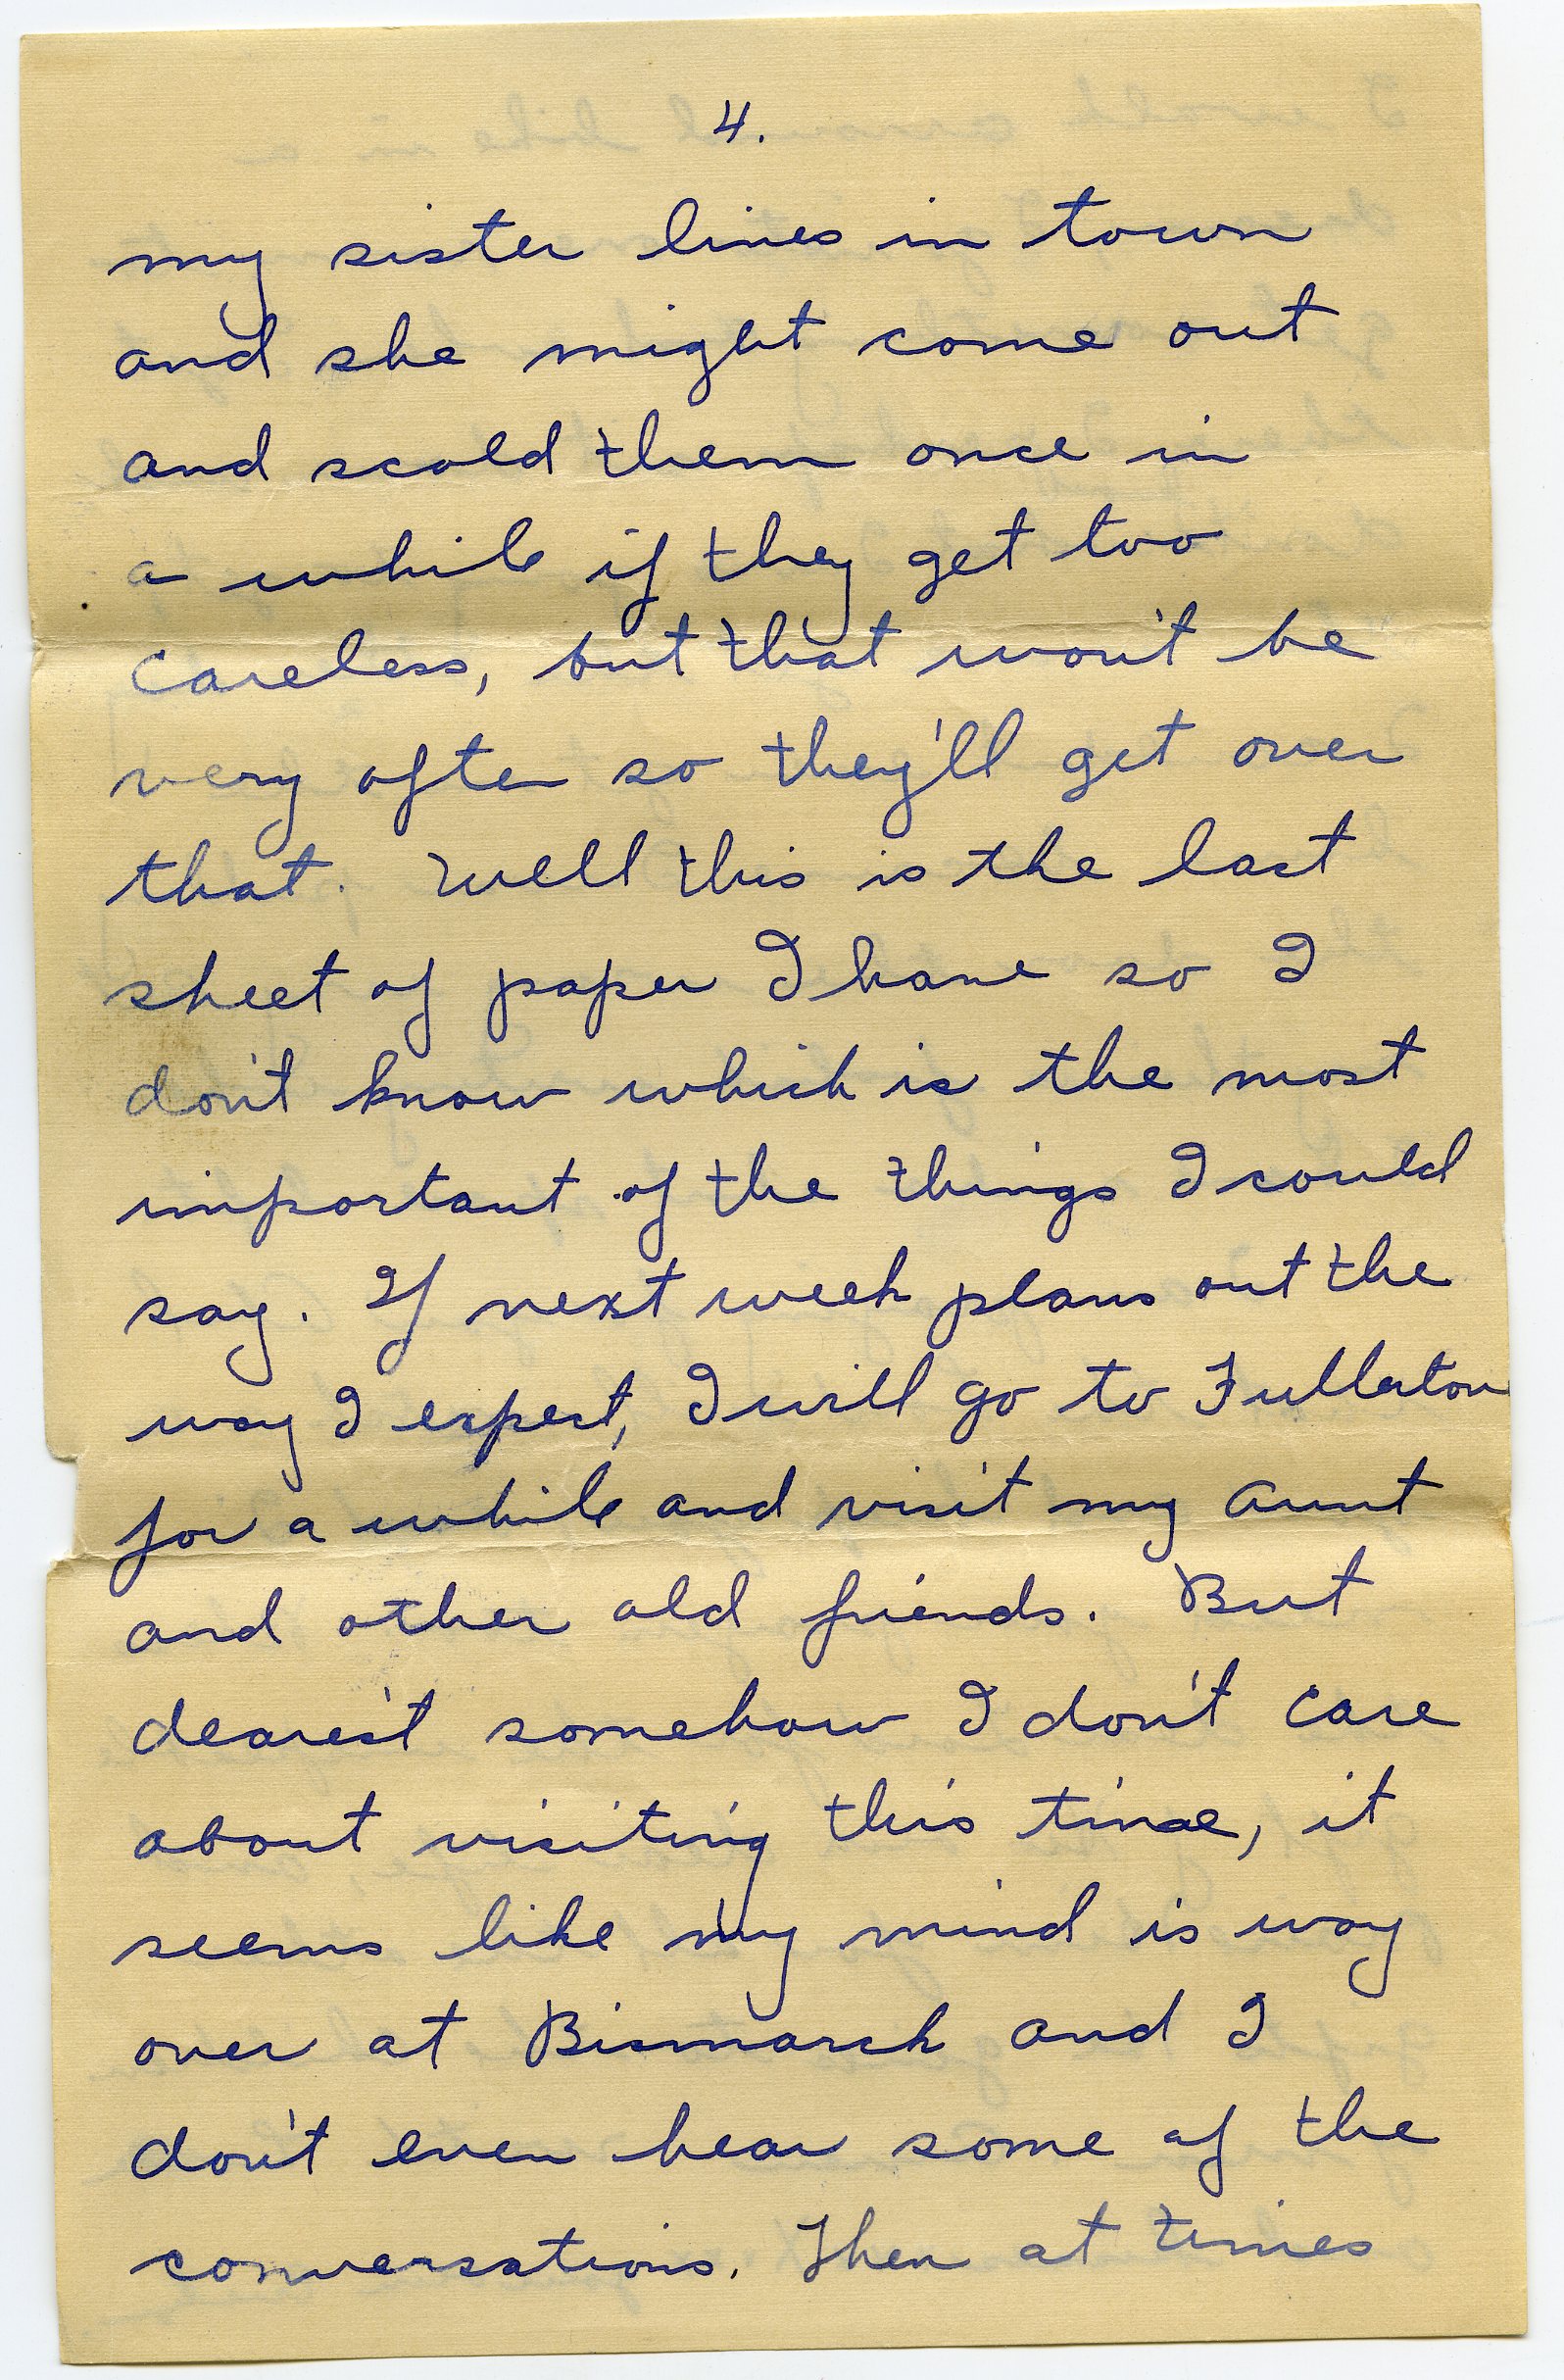 4.
my sister lives in town
and she might come out
and scold them once in
a while if they get too
careless, but that won't be
very often so they'll get over
that. Well this is the last
sheet of paper I have so I
don't know which is the most
important of the things I could
say. If next week plans out the
way I expect, I will go to Fullerton
for a while and visit my Aunt
and other old friends. But
dearest somehow I don't care
about visiting this time, it
seems like my mind is way
over at Bismarck and I
don't even hear some of the
conversations. Then at times